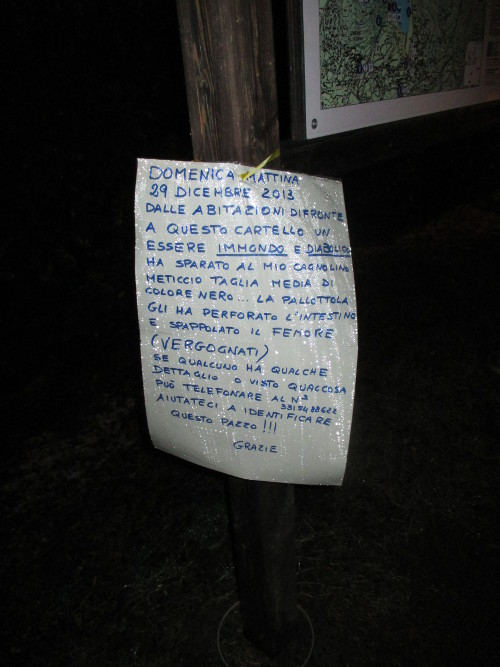 DOMENICA MATTINA
29 DICEMBRE 2013
DALLE ABITAZIONI DIFRONTE
A QUESTO CARTELLO UN
ESSERE IMMONDO E DIABOLICO
HA SPARATO AL MIO CAGNOLINO
METICCIO TAGLIA MEDIA DI
COLORE NERO... LA PALLOTTOLA
GLI HA PERFORATO L'INTESTINO
E SPAPPOLATO IL FEMORE
(VERGOGNATI)
SE QUALCUNO HA QUALCHE
DETTAGLIO O VISTO QUALCOSA
PUÒ TELEFONARE AL N°
3315488622
AIUTATECI A IDENTIFICARE
QUESTO PAZZO!!!
GRAZIE